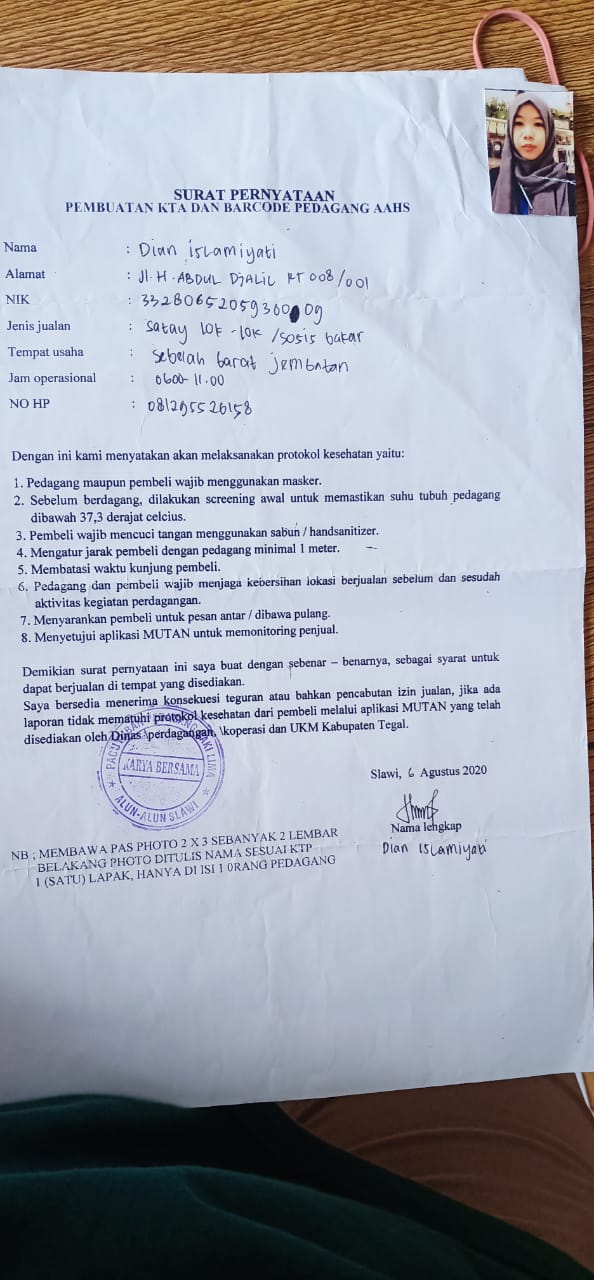 SURAT PERNYATAAN
PEMBUATAN KTA DAN BARCODE PEDAGANG AAHS
Nama : Dian islamiyati
Alamat : Jl. H. ABDUL DJALIL RT 008/001
NIK :
Jenis jualan : Satay lok-lok /sosis bakar
Tempat usaha : sebelah barat jembatan
Jam operasional : 0600-11.00
NO HP :
Dengan ini kami menyatakan akan melaksanakan protokol kesehatan yaitu:
1. Pedagang maupun pembeli wajib menggunakan masker.
2. Sebelum berdagang, dilakukan screening awal untuk memastikan suhu tubuh pedagang
dibawah 37,3 derajat celcius.
3. Pembeli wajib mencuci tangan menggunakan sabun / handsanitizer.
4. Mengatur jarak pembeli dengan pedagang minimal 1 meter.
5. Membatasi waktu kunjung pembeli.
6. Pedagang dan pembeli wajib menjaga kebersihan lokasi berjualan sebelum dan sesudah
aktivitas kegiatan perdagangan.
7. Menyarankan pembeli untuk pesan antar / dibawa pulang.
8. Menyetujui aplikasi MUTAN untuk memonitoring penjual.
Demikian surat pernyataan ini saya buat dengan sebenar – benarnya, sebagai syarat untuk
dapat berjualan di tempat yang disediakan.
Saya bersedia menerima konsekuesi teguran atau bahkan pencabutan izin jualan, jika ada
laporan tidak mematuhi protokol kesehatan dari pembeli melalui aplikasi MUTAN yang telah
disediakan oleh Dinas \perdagangan, \koperasi dan UKM Kabupaten Tegal.
KARYA BERSAMA
ALUN-ALUN SLAWI
Slawi, 6 Agustus 2020
Nama lengkap
Dian Islamiyati
NB ; MEMBAWA PAS PHOTO 2 X 3 SEBANYAK 2 LEMBAR
BELAKANG PHOTO DITULIS NAMA SESUAI KTP
1 (SATU) LAPAK, HANYA DI ISI 1 0RANG PEDAGANG